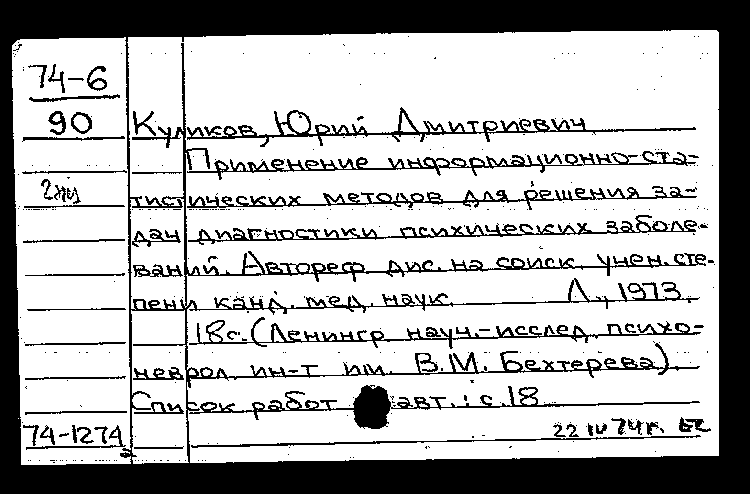 74-6
90 Куликов, Юрий Дмитриевич
Применение информационно-ста-
тистических методов для решения за-
дач диагностики психических заболе-
ваний. Автореф. дис. на соиск. учен. сте-
пени канд. мед. наук. Л., 1973.
18с. (Ленингр. науч.-исслед. психо-
неврол. ин-т им. В.М. Бехтерева).
Список работ авт.: с. 18
74-1274 22 IV 74г.